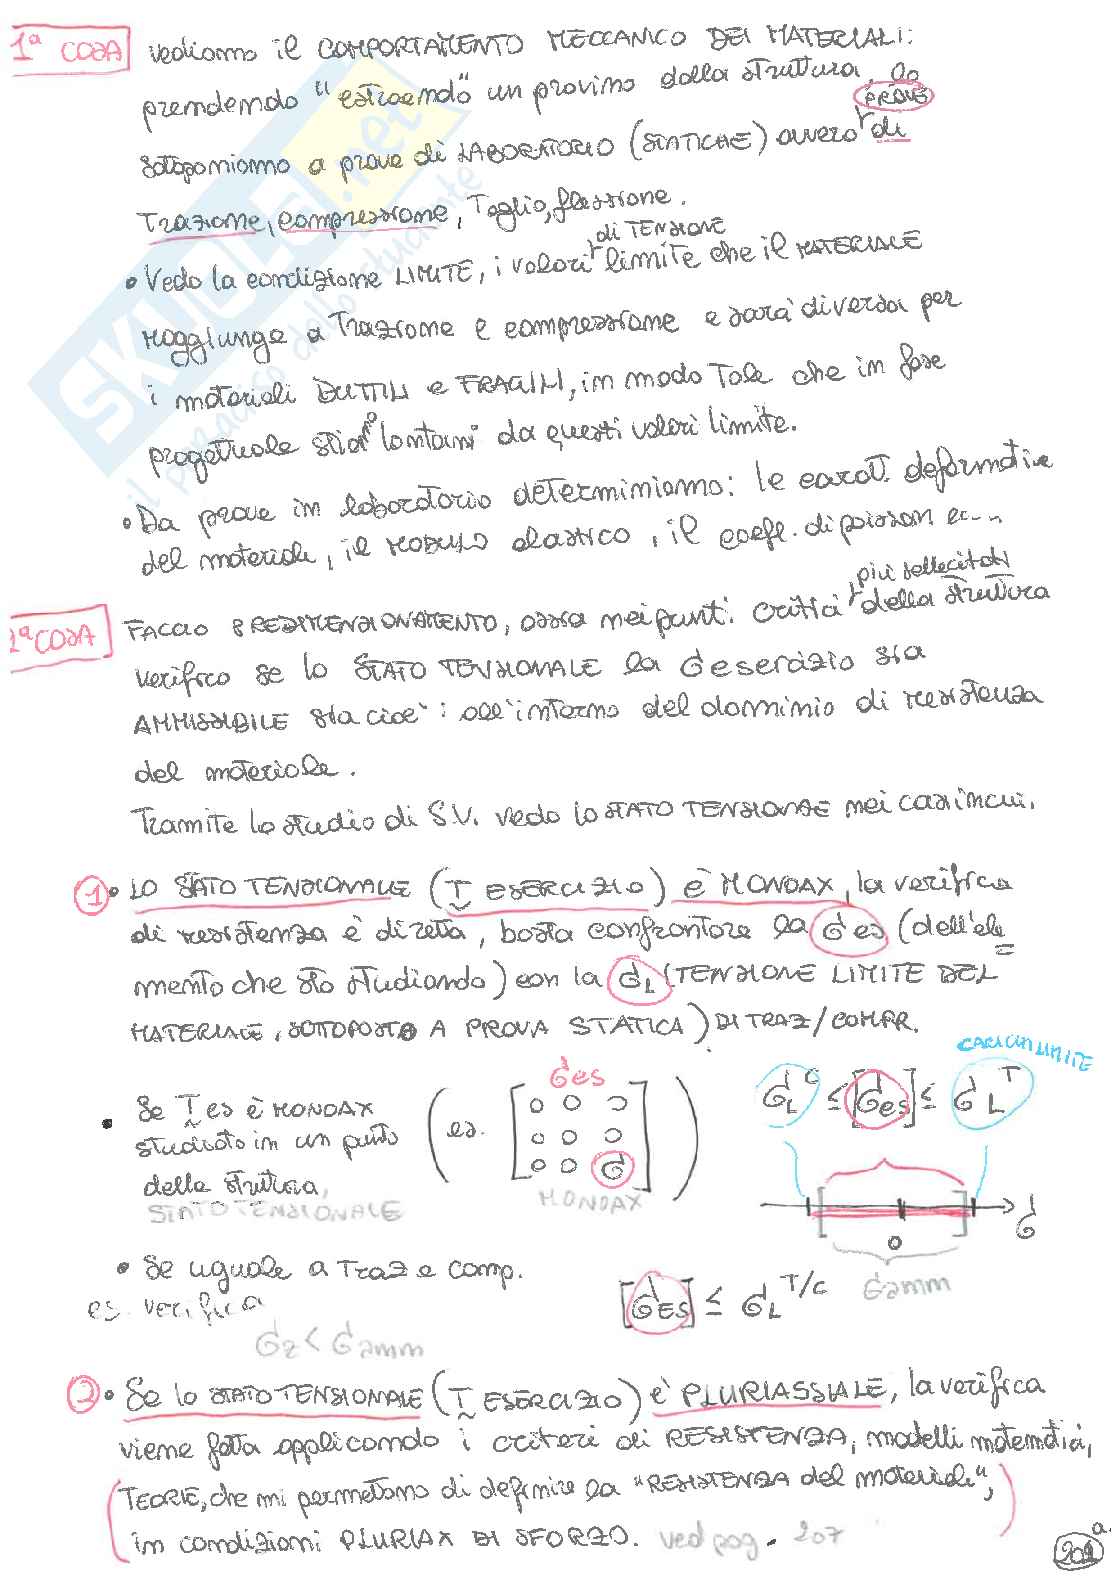 1ª COSA vediamo il COMPORTAMENTO MECCANICO DEI MATERIALI:
prendendo "estraendo" un provino dalla struttura, lo
PROVE
sottoponiamo a prove di LABORATORIO (STATICHE) ovvero di
Trazione, compressione, Taglio, flessione.
di TENSIONE
• Vedo la condizione LIMITE, i valori limite che il MATERIALE
raggiunge a Trazione e compressione e sarà diversa per
i materiali DUTTILI e FRAGILI, in modo Tale che in fase
progettuale stia lontano da questi valori limite.
• Da prove in laboratorio determiniamo: le caratt. deformative
del materiale, il MODULO elastico, il coeff. di poisson ec...
più sollecitati
2ª COSA FACCIO PREDIMENSIONAMENTO, ossia nei punti critici della struttura
verifico se lo STATO TENSIONALE la σ esercizio sia
AMMISSIBILE sta cioè: all'interno del dominio di resistenza
del materiale.
Tramite lo studio di S.V. vedo lo STATO TENSIONALE nei casi in cui.
1 • LO STATO TENSIONALE (T ESERCIZIO) è MONOAX, la verifica
di resistenza è diretta, basta confrontare la σes (dell'ele
mento che sto studiando) con la σL (TENSIONE LIMITE DEL
MATERIALE, SOTTOPOSTO A PROVA STATICA) DI TRAZ/COMPR.
CARICHI LIMITE
σes
σL^C ≤ [σes] ≤ σL^T
• Se T es è MONOAX
studiato in un punto
della struttura,
STATO TENSIONALE
(es. [0 0 0
0 0 0
0 0 σ])
MONOAX
σ
0
σamm
• Se uguale a Traz e comp.
[σES] ≤ σL^T/C
es. verifica
σz < σamm
2 • Se lo STATO TENSIONALE (T ESERCIZIO) è PLURIASSIALE, la verifica
viene fatta applicando i criteri di RESISTENZA, modelli matematici,
(TEORIE, che mi permettono di definire la "RESISTENZA del materiale",
in condizioni PLURIAX DI SFORZO.) ved pag. 207
SKUOLA.net
il paradiso dello studente